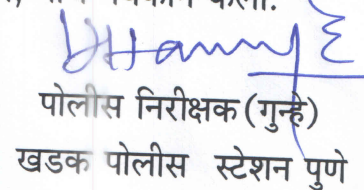 पोलीस निरीक्षक (गुन्हे)
खडक पोलीस स्टेशन पुणे